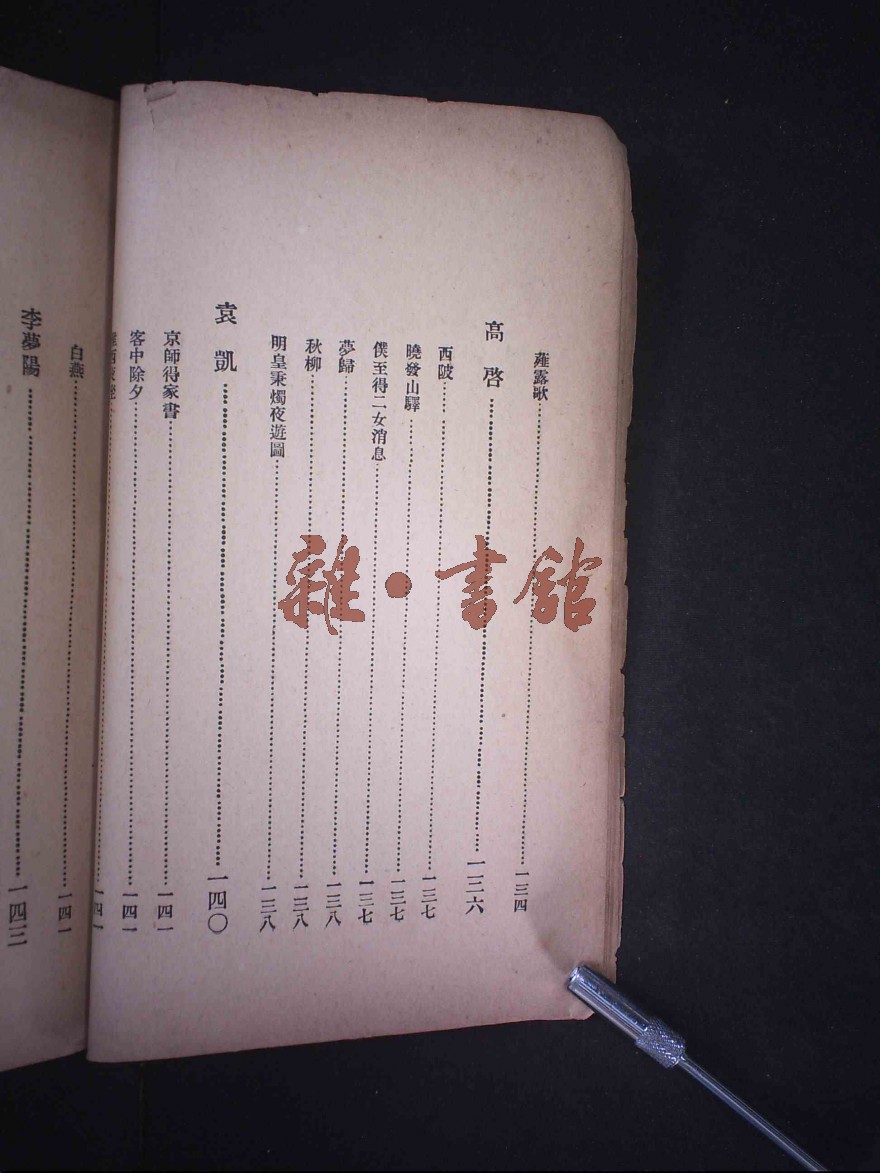 薤露歌……一三四
高啓……一三六
西陂……一三七
曉發山驛……一三七
僕至得二女消息……一三七
夢歸……一三八
秋柳……一三八
明皇秉燭夜遊圖……一三八
袁凱……一四〇
京師得家書……一四一
客中除夕……一四一
一四一
白燕……一四一
李夢陽……一四三
雜·書館